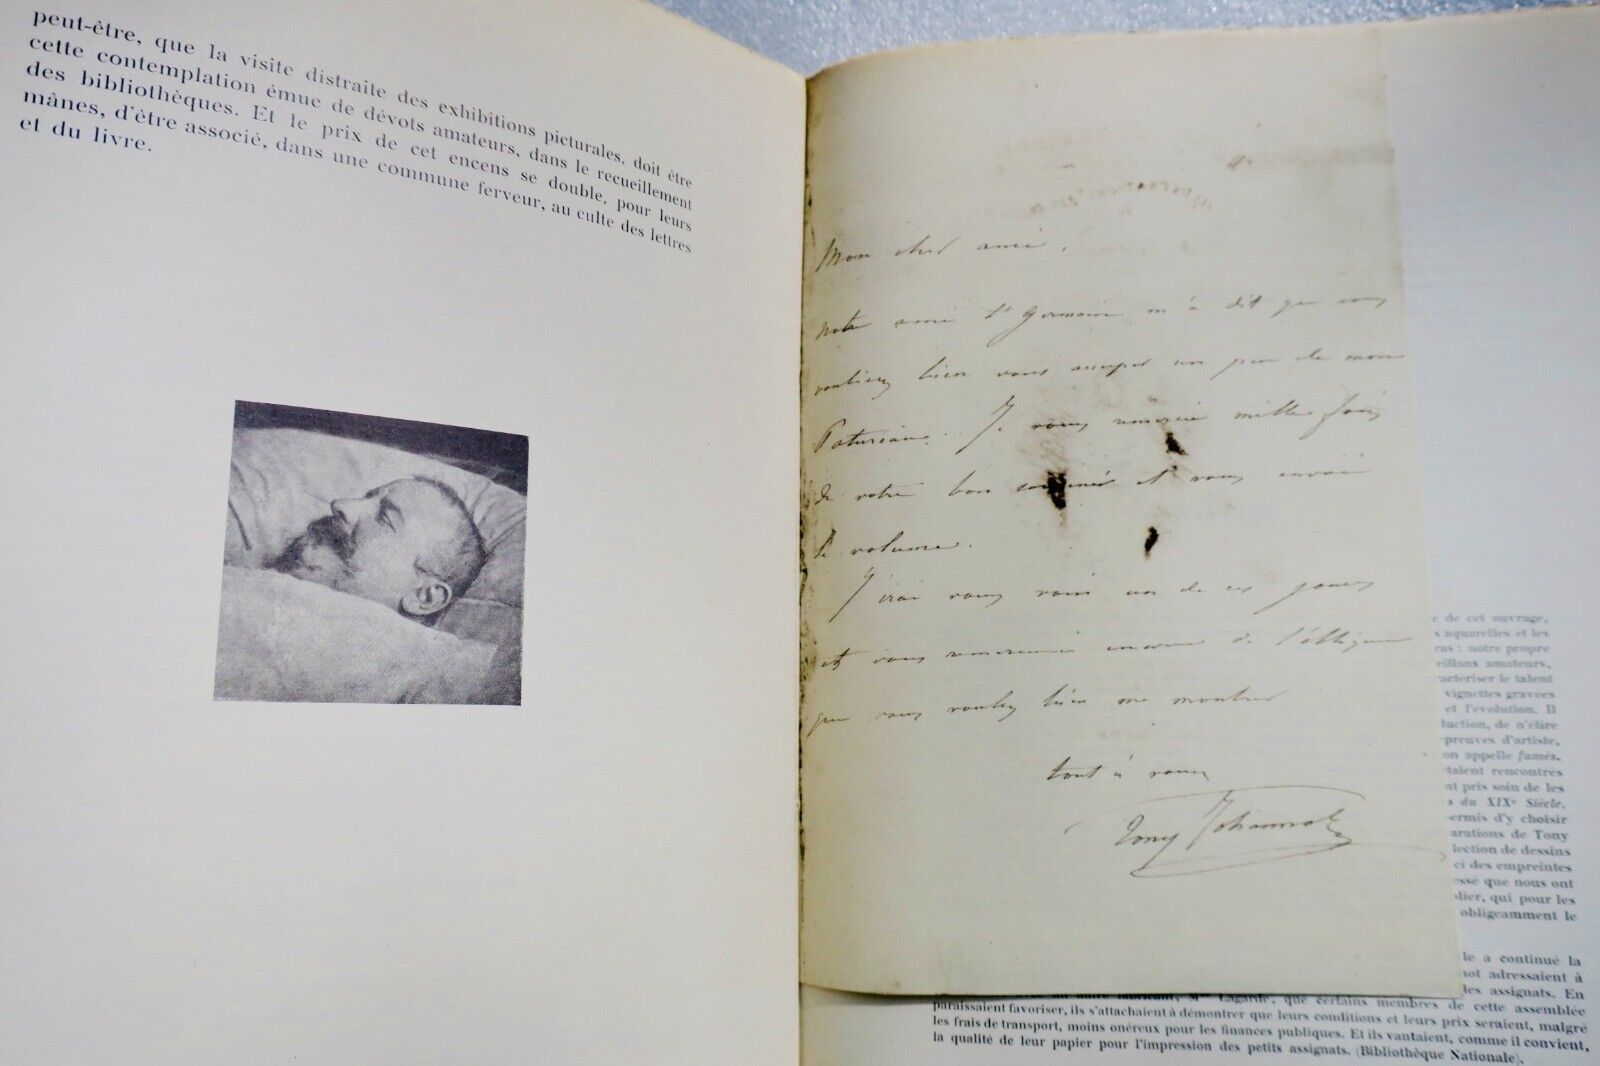 peut-être, que la visite distraite des exhibitions picturales, doit être
cette contemplation émue de dévots amateurs, dans le recueillement
des bibliothèques. Et le prix de cet encens se double, pour leurs
mânes, d'être associé, dans une commune ferveur, au culte des lettres
et du livre.
Mon cher ami,
notre ami St Germain m'a dit que vous
vouliez bien vous occuper un peu de mon
Patureau. Je vous remercie mille fois
de votre bon et vous envoie
le volume.
J'irai vous voir un de ces jours
et vous remercier encore de
que vous voulez bien me montrer
tout à vous
Tony Johannot
de cet ouvrage,
aquarelles et les
notre propre
amateurs,
le talent
vignettes gravées
et l'évolution. Il
de n'élire
d'artiste,
on appelle fumés,
rencontrés
pris soin de les
du XIXe Siècle,
permis d'y choisir
de Tony
de dessins
ci des empreintes
que nous ont
qui pour les
obligeamment le
a continué la
adressaient à
les assignats. En
paraissaient favoriser, ils s'attachaient à démontrer que leurs conditions et leurs prix seraient, malgré
Lagarde, que certains membres de cette assemblée
les frais de transport, moins onéreux pour les finances publiques. Et ils vantaient, comme il convient,
la qualité de leur papier pour l'impression des petits assignats. (Bibliothèque Nationale).